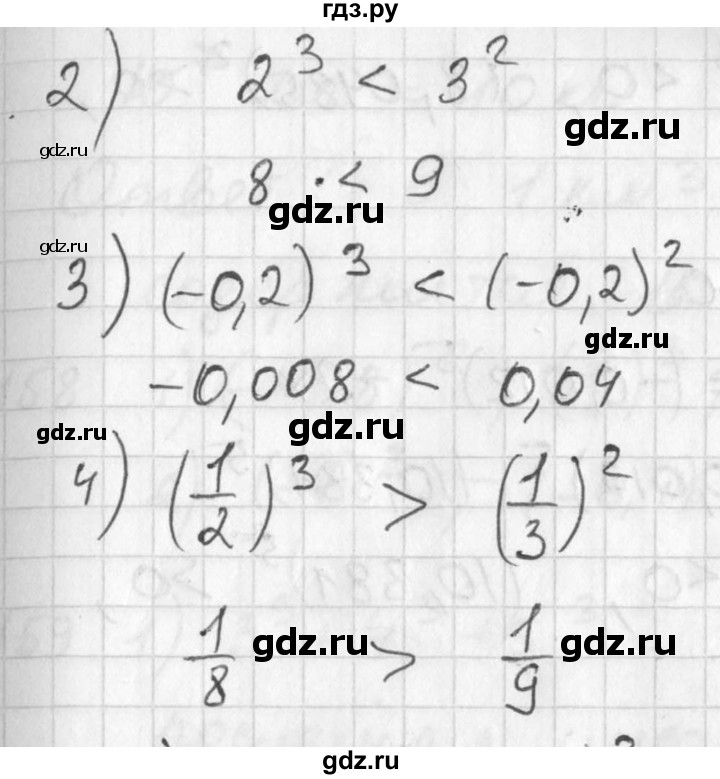 гдз.ру
2) 2³ < 3²
gdz.ru
gdz.ru
8 < 9
gdz.ru
gdz.ru
3) (-0,2)³ < (-0,2)²
gdz.ru
-0,008 < 0,04
gdz.ru
gdz.ru
4) (1/2)³ > (1/3)²
1/8 > 1/9
gdz.ru
gdz.ru
gdz.ru